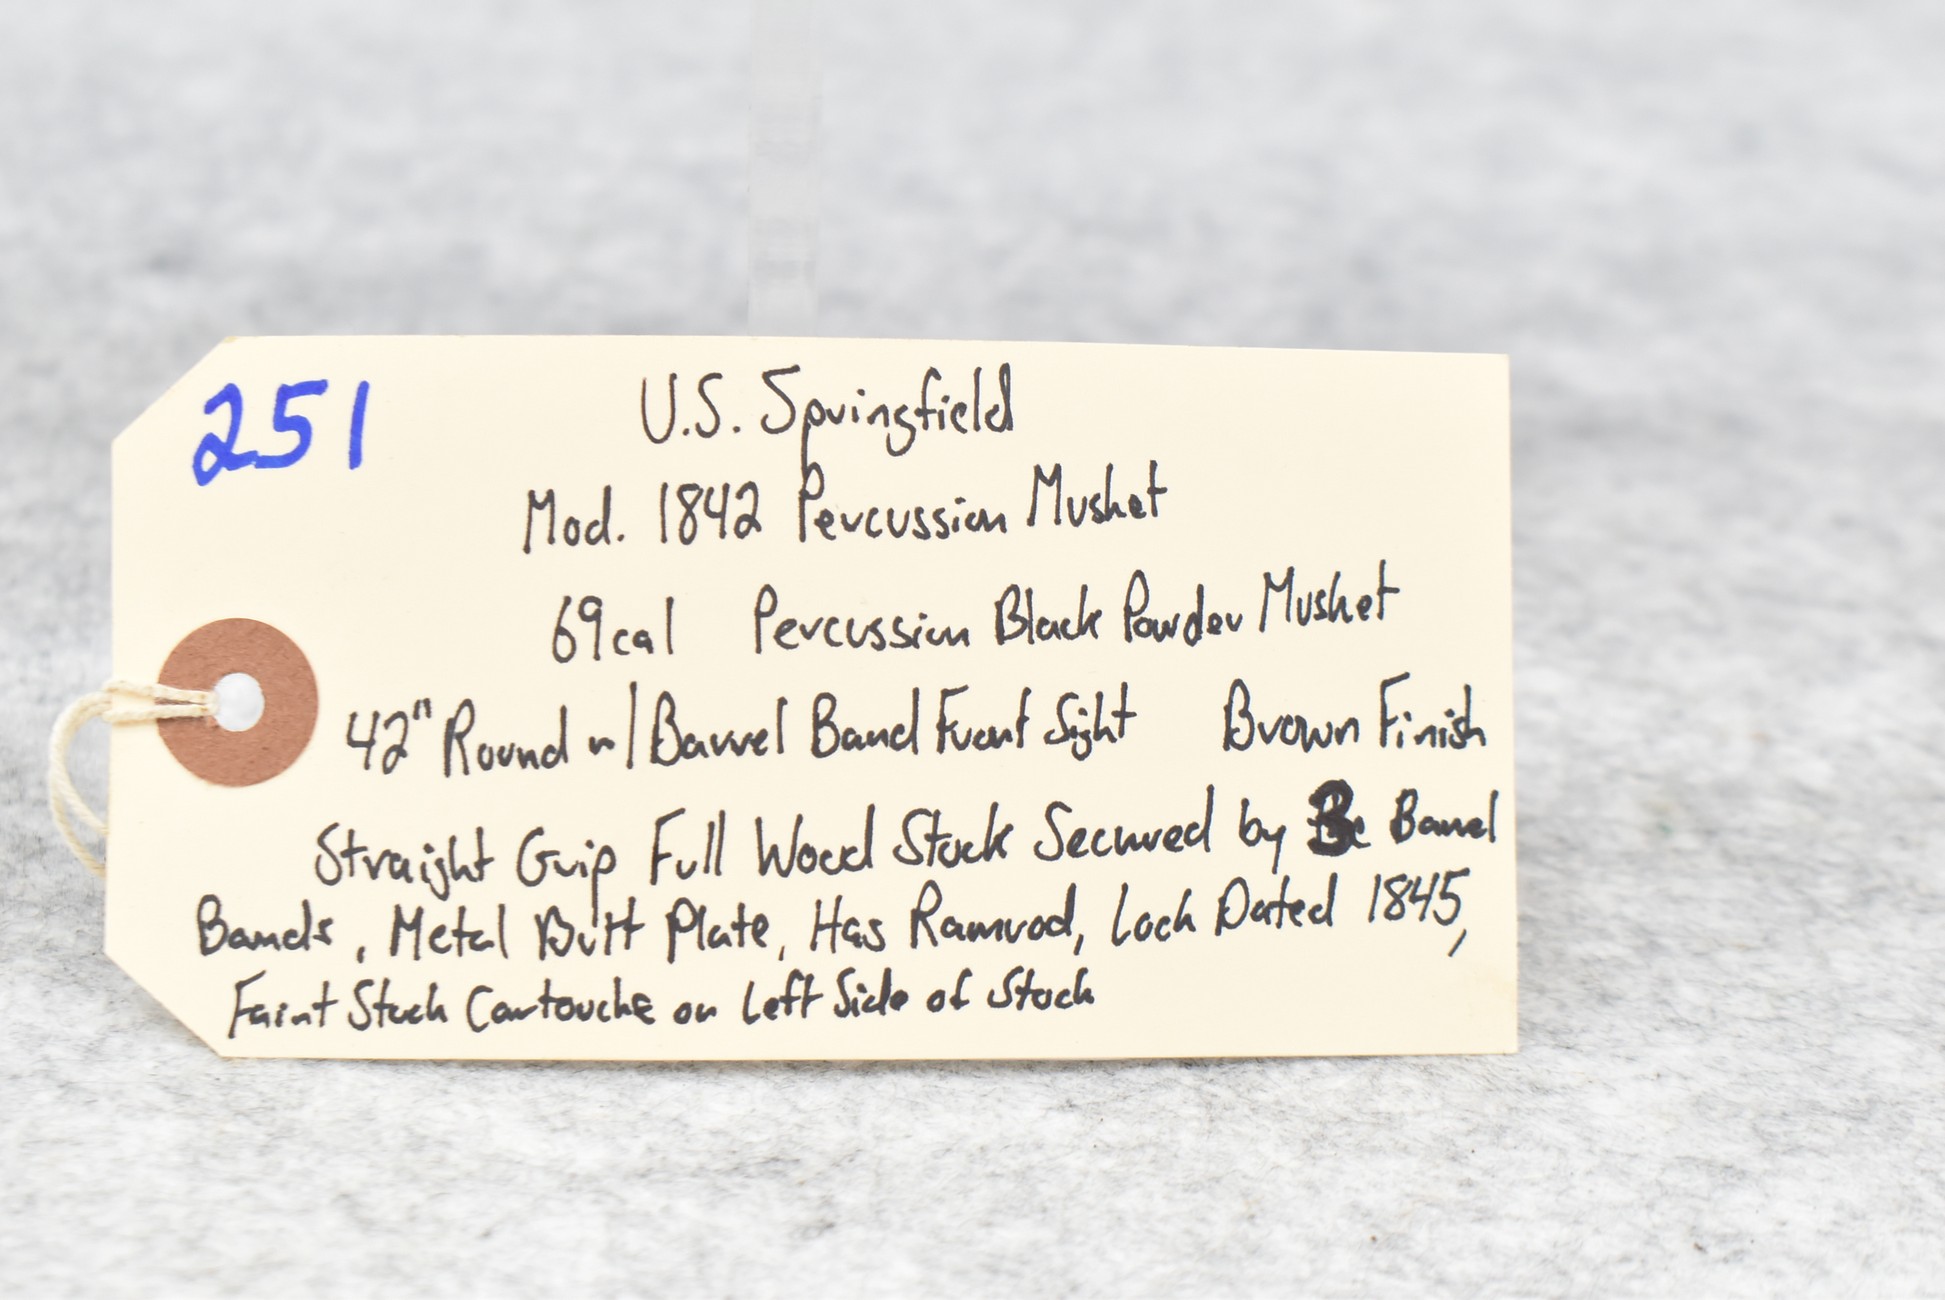 251
U.S. Springfield
Mod. 1842 Percussion Musket
69cal Percussion Black Powder Musket
42" Round w/ Barrel Band Front Sight Brown Finish
Straight Grip Full Wood Stock Secured by 3 Barrel
Bands, Metal Butt Plate, Has Ramrod, Lock Dated 1845,
Faint Stock Cartouche on Left Side of Stock